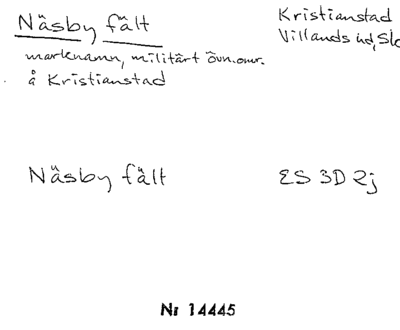 Näsby fält
Kristianstad
Villands hd, Sk
marknamn, militärt övn.omr.
å Kristianstad
Näsby fält
ES 3D 2j
Nr 14445